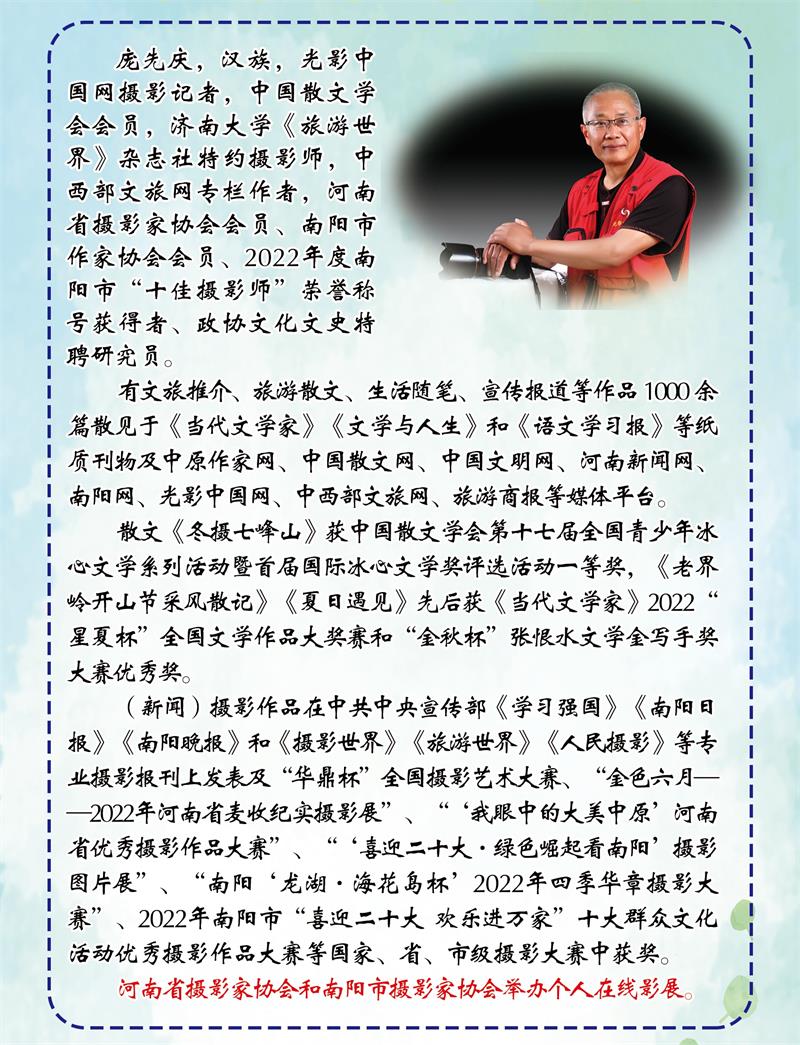 庞先庆，汉族，光影中
国网摄影记者，中国散文学
会会员，济南大学《旅游世
界》杂志社特约摄影师，中
西部文旅网专栏作者，河南
省摄影家协会会员、南阳市
作家协会会员、2022年度南
阳市“十佳摄影师”荣誉称
号获得者、政协文化文史特
聘研究员。
有文旅推介、旅游散文、生活随笔、宣传报道等作品1000余
篇散见于《当代文学家》《文学与人生》和《语文学习报》等纸
质刊物及中原作家网、中国散文网、中国文明网、河南新闻网、
南阳网、光影中国网、中西部文旅网、旅游商报等媒体平台。
散文《冬摄七峰山》获中国散文学会第十七届全国青少年冰
心文学系列活动暨首届国际冰心文学奖评选活动一等奖，《老界
岭开山节采风散记》《夏日遇见》先后获《当代文学家》2022“
星夏杯”全国文学作品大奖赛和“金秋杯”张恨水文学金写手奖
大赛优秀奖。
（新闻）摄影作品在中共中央宣传部《学习强国》《南阳日
报》《南阳晚报》和《摄影世界》《旅游世界》《人民摄影》等专
业摄影报刊上发表及“华鼎杯”全国摄影艺术大赛、“金色六月—
—2022年河南省麦收纪实摄影展”、“‘我眼中的大美中原’河南
省优秀摄影作品大赛”、“‘喜迎二十大·绿色崛起看南阳’摄影
图片展”、“南阳‘龙湖·海花岛杯’2022年四季华章摄影大
赛”、2022年南阳市“喜迎二十大 欢乐进万家”十大群众文化
活动优秀摄影作品大赛等国家、省、市级摄影大赛中获奖。
河南省摄影家协会和南阳市摄影家协会举办个人在线影展。